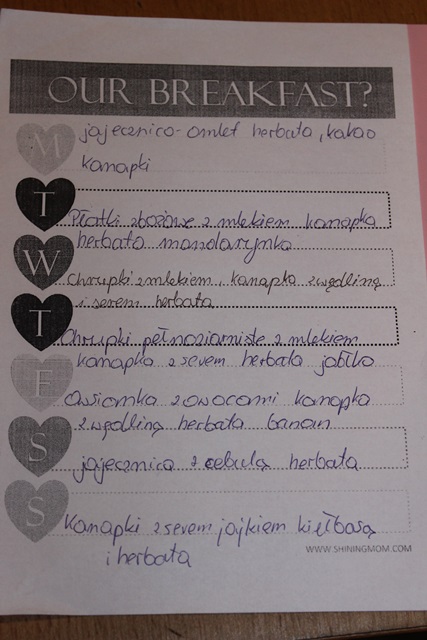 OUR BREAKFAST?
M
jajecznico-omlet herbata, kakao
kanapki
T
Płatki zbożowe z mlekiem kanapka
herbata mandarynka
W
Chrupki z mlekiem, kanapka z wędliną
i serem herbata
T
Chrupki pełnoziarniste z mlekiem
kanapka z serem herbata jabłko
F
Owsianka z owocami kanapka
z wędliną herbata banan
S
jajecznica z cebulą herbata
S
Kanapki z serem jajkiem kiełbasą
i herbata
WWW.SHININGMOM.COM